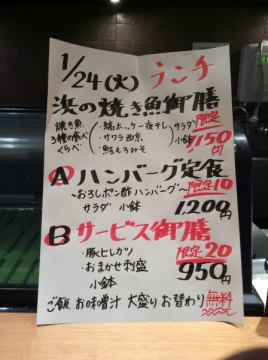 1/24(火) ランチ
浜の焼き魚御膳
焼き魚 3種の食べくらべ
・縞ホッケ一夜干し
・サワラ西京
・鯖もろみそ
サラダ 小鉢
限定
1150円
A ハンバーグ定食
～おろしポン酢ハンバーグ～ 限定10
サラダ 小鉢 1,200円
B サービス御膳
限定20
・豚ヒレカツ
・おまかせ刺盛
小鉢
950円
ご飯 お味噌汁 大盛り お替わり 無料